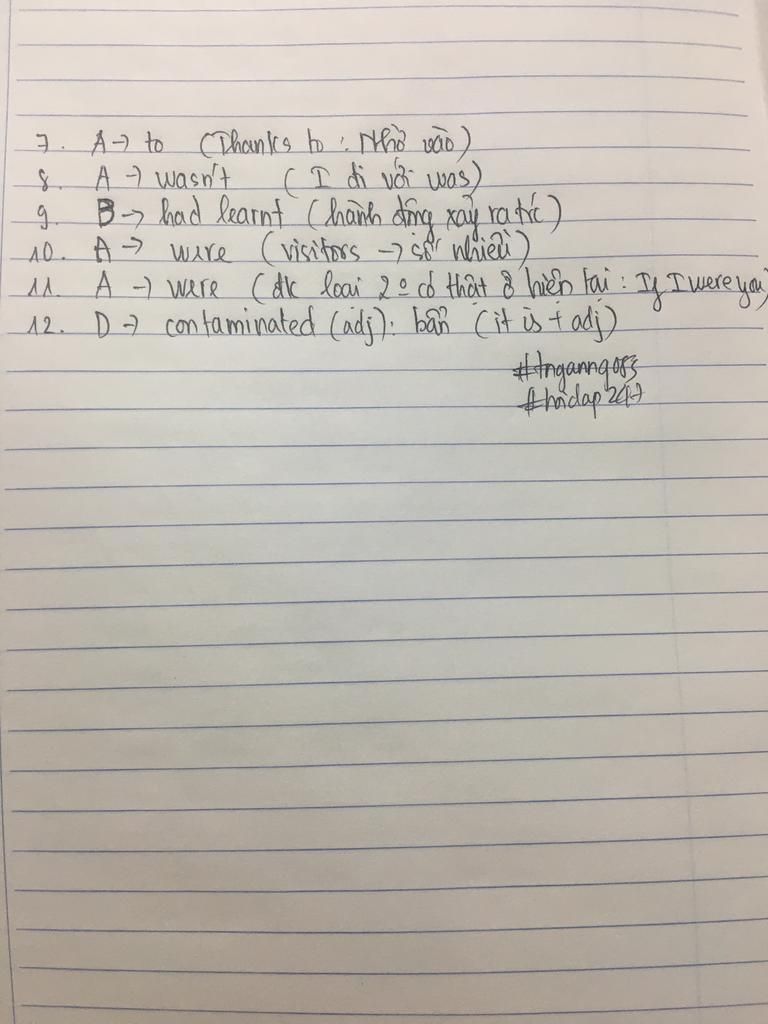 7. A → to (Thanks to : Nhờ vào)
8. A → wasn't (I đi với was)
9. B → had learnt (hành động xảy ra trc)
10. A → were (visitors → số nhiều)
11. A → were (đk loại 2 : o có thật ở hiện tại : If I were you)
12. D → contaminated (adj): bẩn (it is + adj)
#tnganng083
#hoidap247